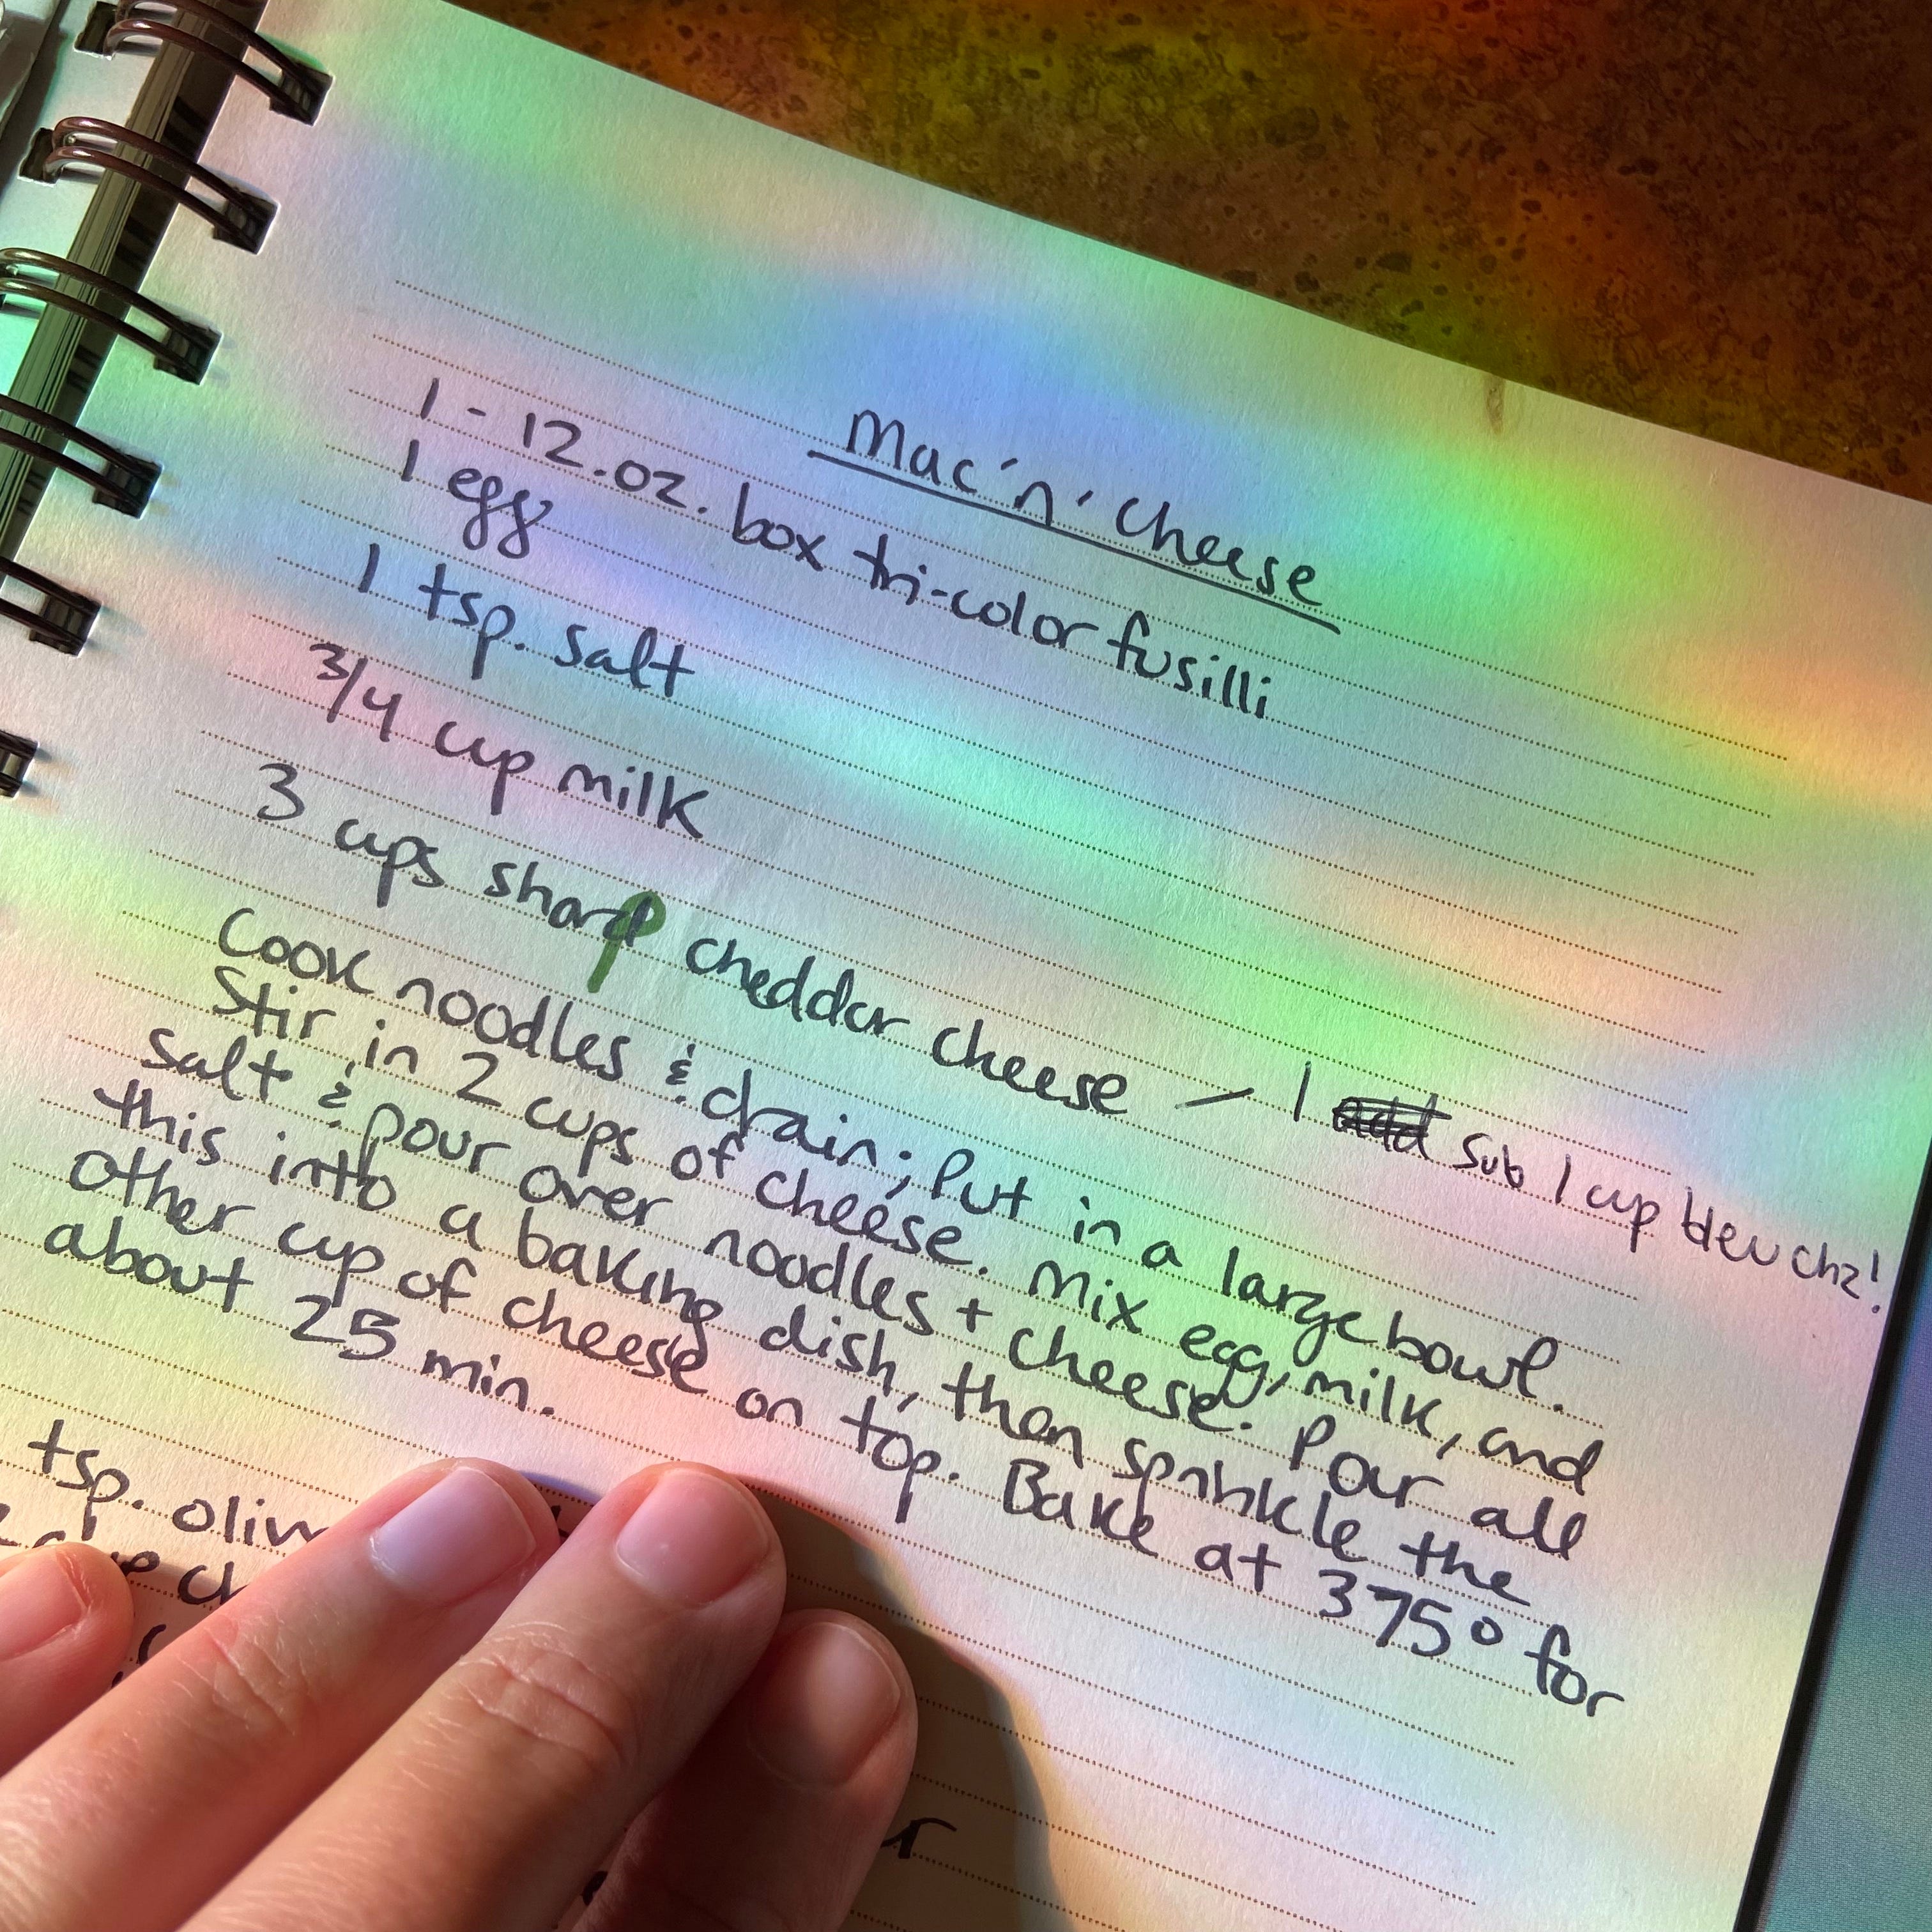 Mac 'n' Cheese
1 - 12.oz. box tri-color fusilli
1 egg
1 tsp. salt
3/4 cup milk
3 cups sharp cheddar cheese / 1 add sub 1 cup bleu chz!
Cook noodles & drain; Put in a large bowl.
Stir in 2 cups of cheese. Mix egg, milk, and
salt & pour over noodles + cheese. Pour all
this into a baking dish, then sprinkle the
other cup of cheese on top. Bake at 375° for
about 25 min.
tsp.